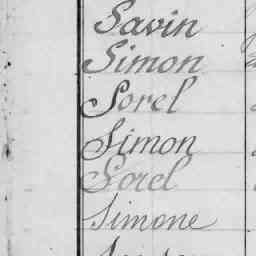 Savin
Simon
Sorel
Simon
Sorel
Simone